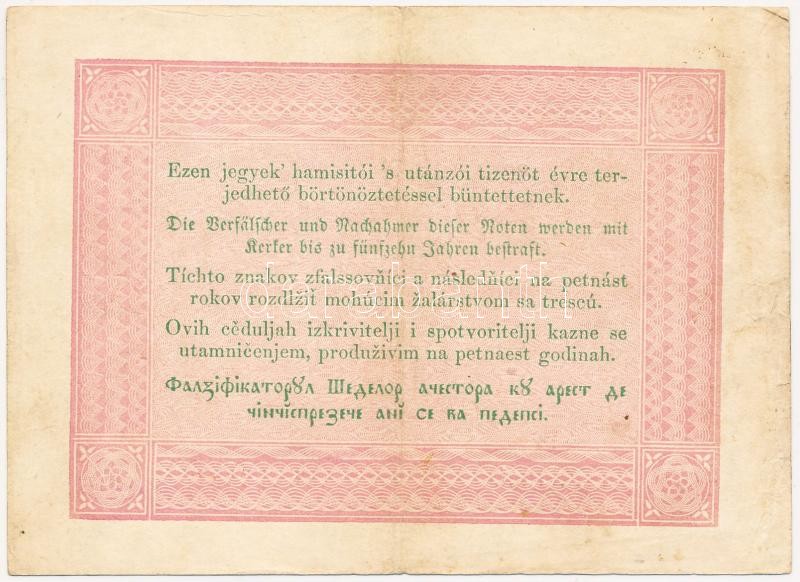 Ezen jegyek' hamisitói 's utánzói tizenöt évre ter-
jedhető börtönöztetéssel büntettetnek.
Die Verfälscher und Nachahmer dieser Noten werden mit
Kerker bis zu fünfzehn Jahren bestraft.
Tíchto znakov zfalssovňíci a následňíci na petnást
rokov rozdlžiť mohúcim žalárstvom sa trescú.
Ovih cĕduljah izkrivitelji i spotvoritelji kazne se
utamničenjem, produživim na petnaest godinah.
Фалзіфікаторꙋл Шеделор ачестора кꙋ арест де
чінчіспрезече ані се ва педепсі.